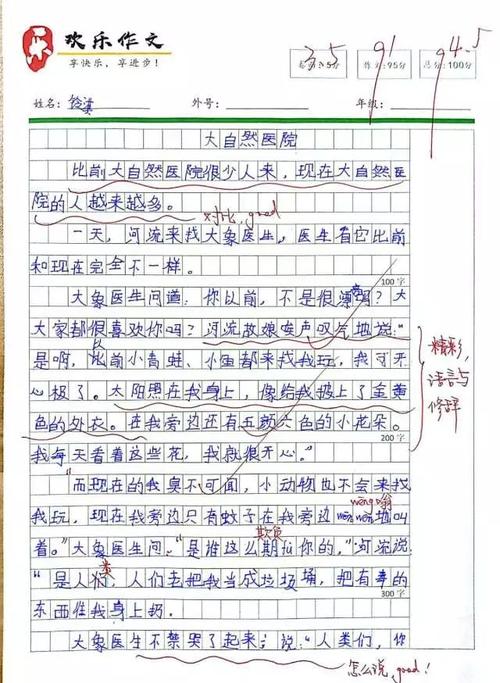 欢乐作文
享快乐，享进步！
3.5
91
94.5
5分
作文:95分
总分:100分
姓名:
外号:
年级:
大自然医院
比前大自然医院很少人来，现在大自然医
院的人越来越多。
对比，good
一天，河流来找大象医生，医生看它比前
和现在完全不一样。
100字
大象医生问道：你以前，不是很漂亮吗？大
大家都很喜欢你吗？河流故娘唉声叹气地说：“
是啊，比前小青蛙、小鱼都来找我玩，我可开
以
心极了。太阳照在我身上，像给我披上了金黄
色的外衣。在我旁边还有五颜六色的小花朵。
200字
精彩，
语言与
修辞
我每天看着这些花，我就很开心。”
“而现在的我臭不可闻，小动物也不会来找
wēng嗡
我玩，现在我旁边只有蚊子在我旁边wēng wēng地叫
欺负
着。”大象医生问：“是谁这么期怕你的，”河流说：
类
“是人们，人们去把我当成垃圾桶，把有毒的
300字
东西往我身上扔。
大象医生不禁哭了起来；说：“人类们，你
怎么说，good！